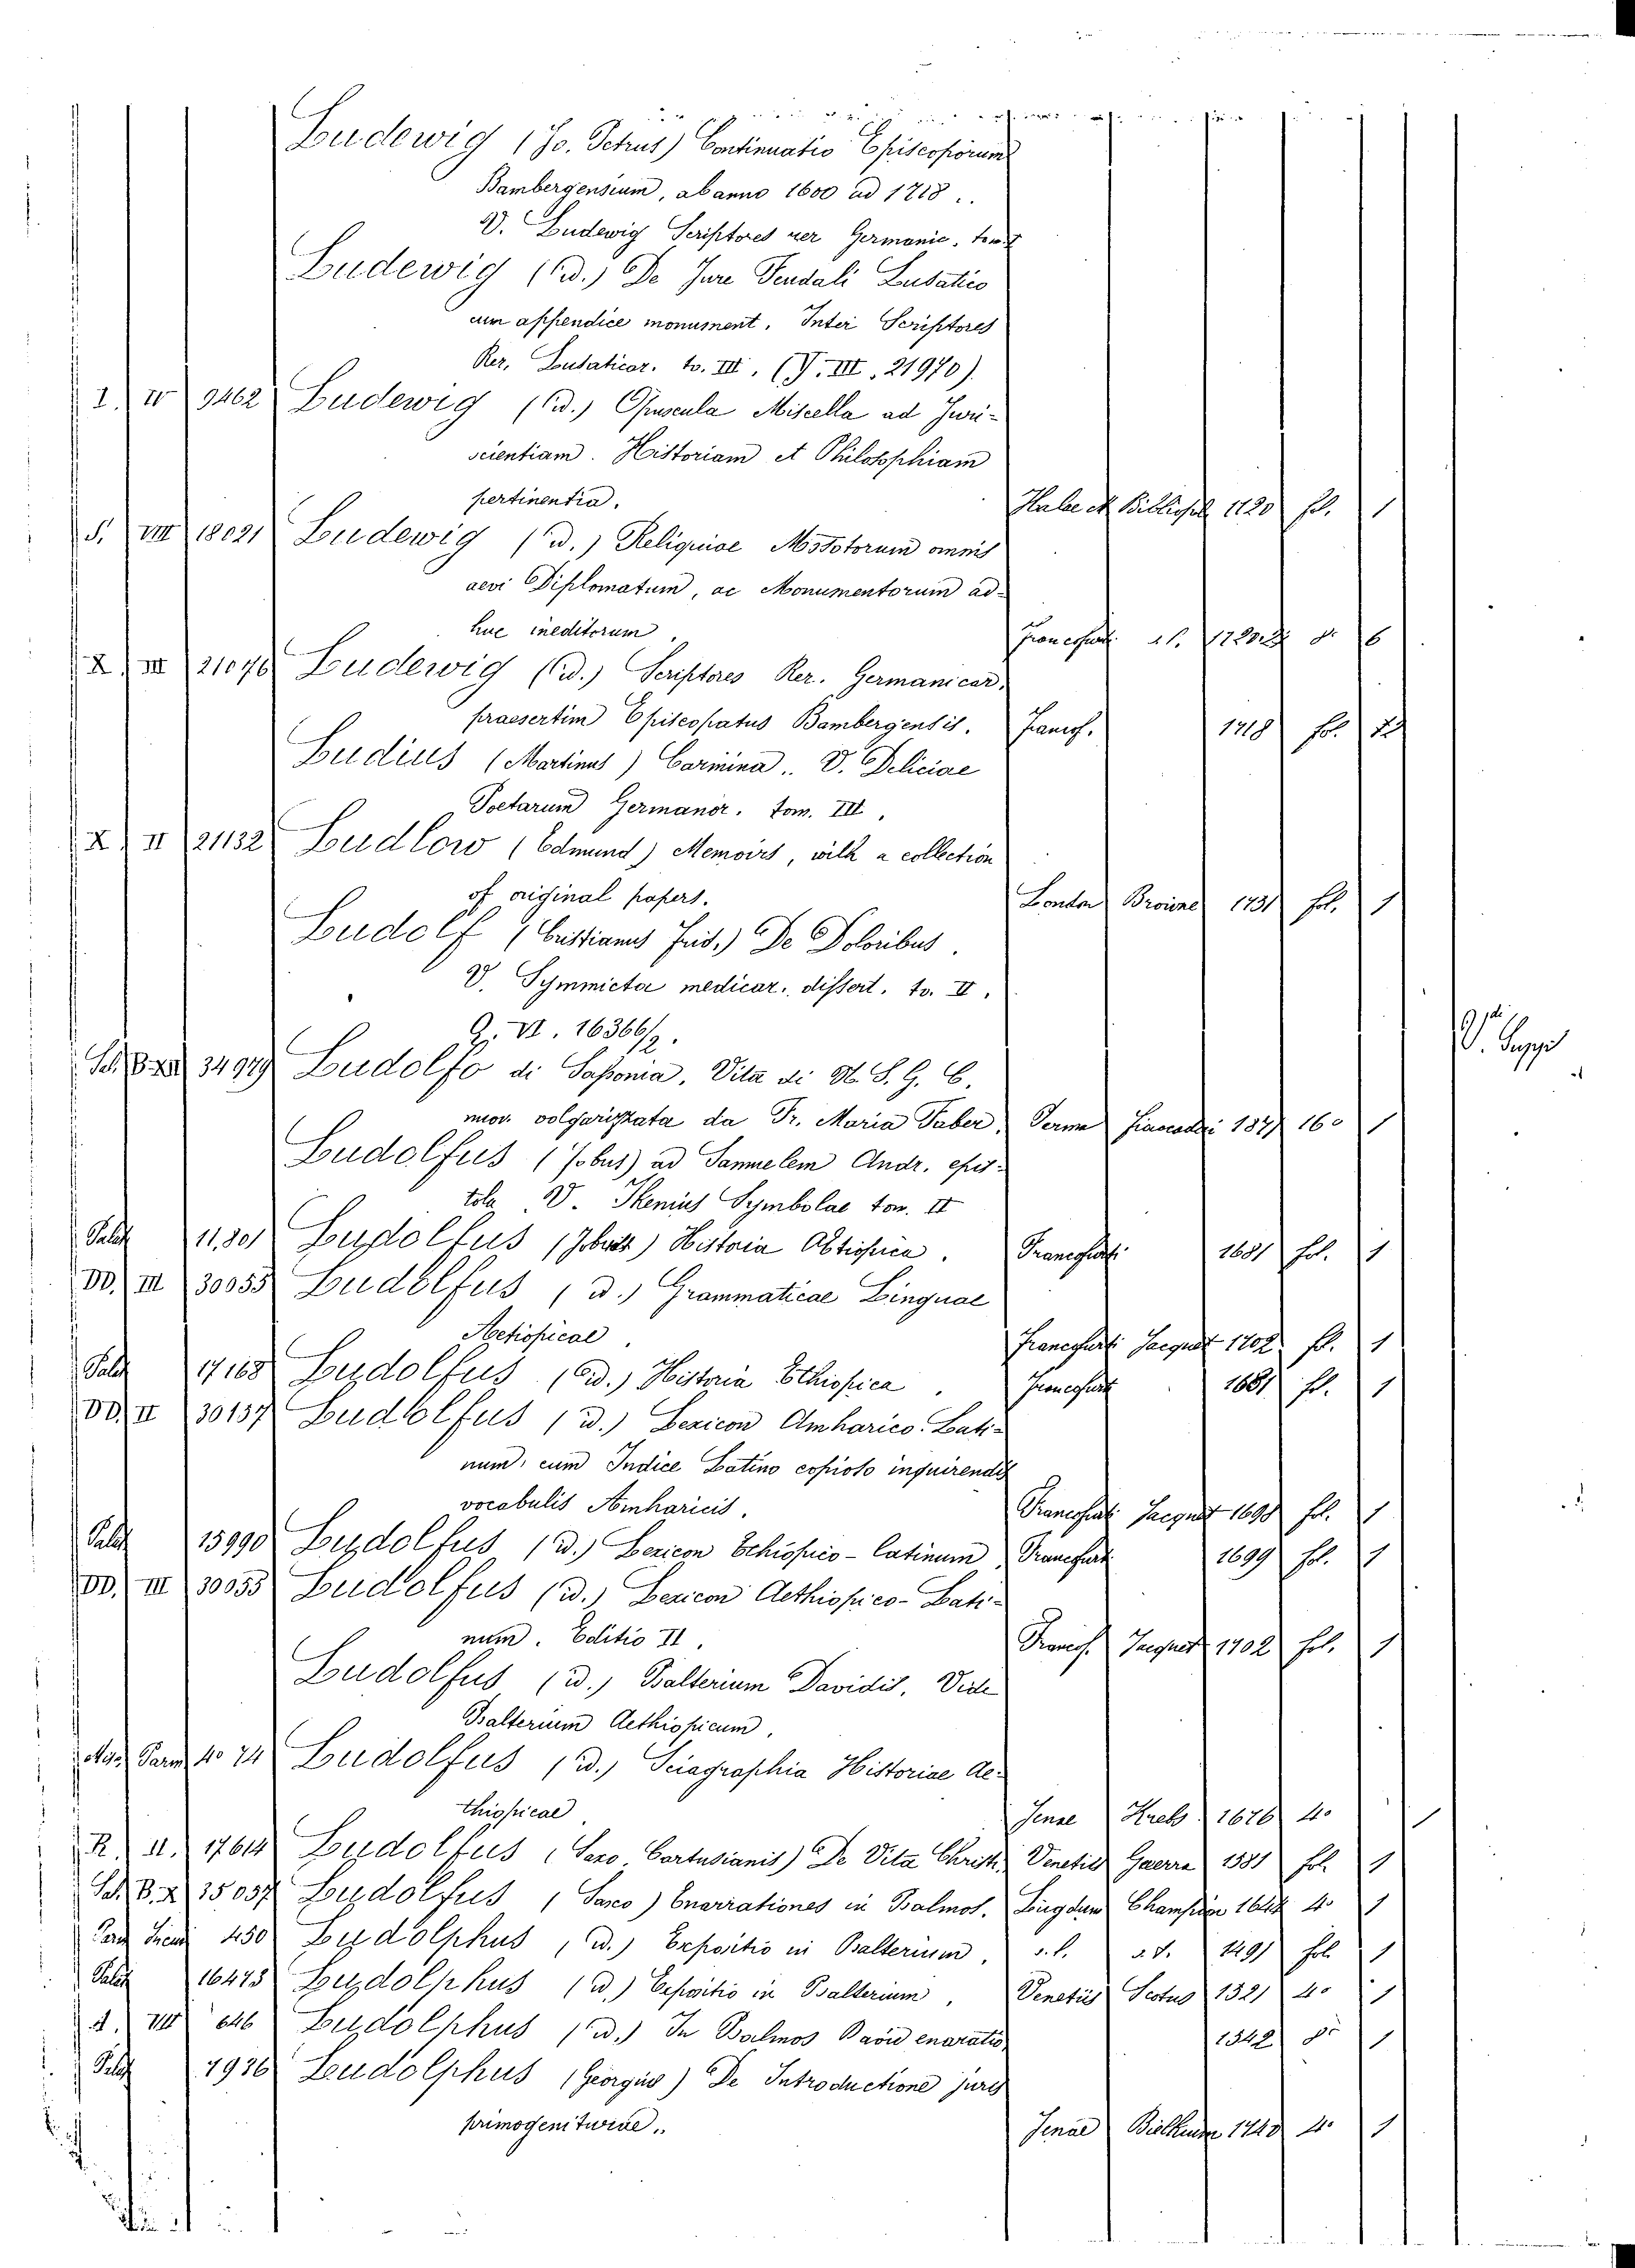 Ludewig (Jo. Petrus) Continuatio Episcoporum
Bambergensium, ab anno 1600 ad 1718.
V. Ludewig Scriptores rer Germanic. tom.
Ludewig (Id.) De Jure Feudali Lusatico
cum appendice monument. Inter Scriptores
Rer. Lusaticar. to. III. (Y. III. 21970).
I. IV 9462 Ludewig (Id.) Opuscula Miscella ad Juri-
scientiam. Historiam et Philosophiam
pertinentia. Halae 1720 fol. 1
S. VIII 18021 Ludewig (Id.) Reliquiae Mstotorum omnis
aevi Diplomatum, ac Monumentorum ad-
huc ineditorum. Francofurti 8. 6
X. III 21076 Ludewig (Id.) Scriptores Rer. Germanicar.
praesertim Episcopatus Bambergensis. Francof. 1718 fol. 2
Ludius (Martinus) Carmina. V. Deliciae
Poetarum Germanor. tom. III.
X. II 21132 Ludlow (Edmund) Memoirs, with a collection
of original papers. London Browne 1731 fol. 1
Ludolf (Cristianus Frid.) De Doloribus.
V. Symmicta medicar. dissert. to. II.
Q. VI. 16366/2.
34979 Ludolfo di Sassonia. Vita di N. S. G. C.
nuov. volgarizzata da Fr. Maria Faber. Parma Fiaccadori 16o 1
Ludolfus (Jobus) ad Samuelem Andr. epis-
tola V. Thenius Symbolae tom. II
Palat 11,801 Ludolfus (Jobus) Historia Aetiopica. Francofurti 1681 fol. 1
DD. III 30055 Ludolfus (Id.) Grammaticae Linguae
Aetiopicae. Francofurti Jacquet 1702 fol. 1
Palat 17168 Ludolfus (Id.) Historia Ethiopica. Francofurti 1681 fol. 1
DD. II 30137 Ludolfus (Id.) Lexicon Amharico-Lati-
num, cum Indice Latino copioso inquirendis
vocabulis Amharicis. Francofurti Jacquet 1698 fol. 1
Palat 15990 Ludolfus (Id.) Lexicon Ethiopico-Latinum Francfurt 1699 fol. 1
DD. III 30055 Ludolfus (Id.) Lexicon Aethiopico-Lati-
num. Editio II. Francof. Jacquet 1702 fol. 1
Ludolfus (Id.) Psalterium Davidis. Vide
Psalterium Aethiopicum.
Parm 4o 74 Ludolfus (Id.) Sciagraphia Historiae Ae-
thiopicae. Jenae Krebs 1676 4o 1
R. II. 17614 Ludolfus (Saxo Cartusianis) De Vita Christi. Venetiis Guerra 1581 fol. 1
B. X 35037 Ludolfus (Saxo) Enarrationes in Psalmos. Lugduni Champion 4o 1
450 Ludolphus (Id.) Expositio in Psalterium. s.l. 1491 fol. 1
Palat 16475 Ludolphus (Id.) Expositio in Psalterium. Venetiis Scotus 1521 4o 1
VIII 646 Ludolphus (Id.) In Psalmos David enaratio. 1542 8o 1
Palat 7936 Ludolphus (Georgius) De Introductione juris
primogeniturae. Jenae 4o 1